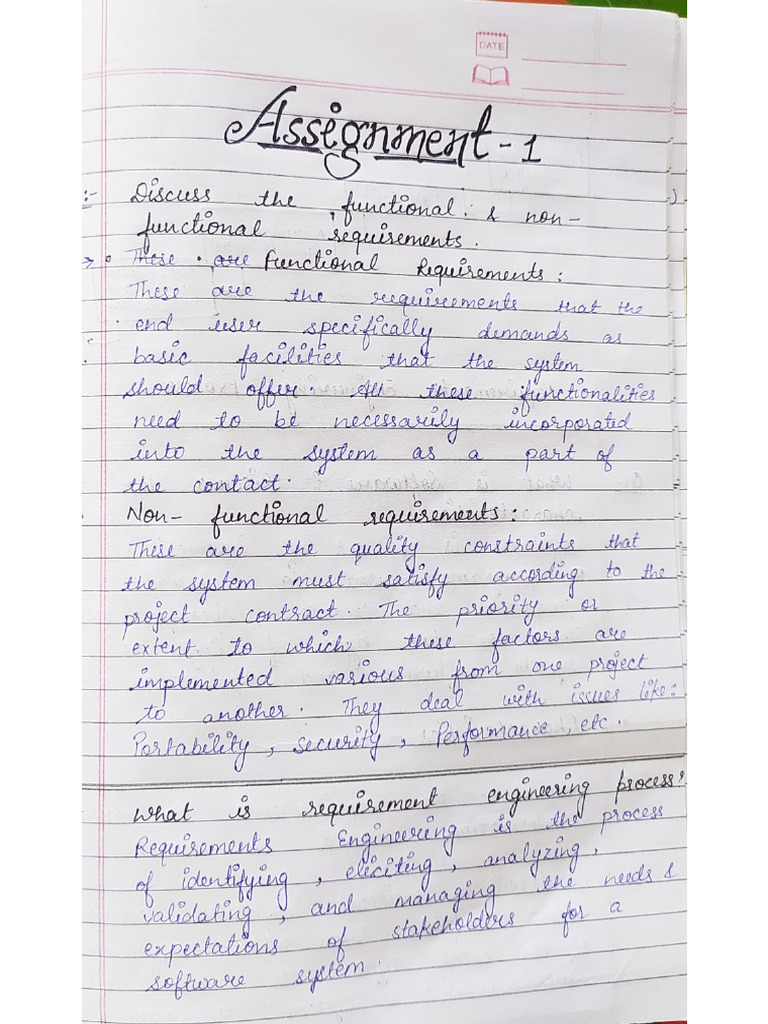 DATE
Assignment - 1
:- Discuss the functional & non-
functional requirements.
→ • These • are Functional Requirements:
These are the requirements that the
end user specifically demands as
basic facilities that the system
should offer. All these functionalities
need to be necessarily incorporated
into the system as a part of
the contact.
• Non- functional requirements:
These are the quality constraints that
the system must satisfy according to the
project contract. The priority or
extent to which these factors are
implemented various from one project
to another. They deal with issues like:
Portability, security, Performance, etc.
What is requirement engineering process?
Requirements Engineering is the process
of identifying, eliciting, analyzing,
validating, and managing the needs &
expectations of stakeholders for a
software system.